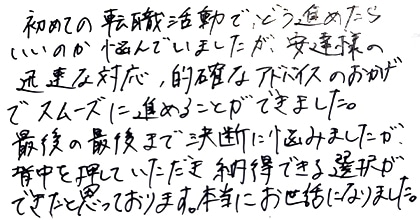 初めての転職活動で、どう進めたら
いいのか悩んでいましたが、安達様の
迅速な対応、的確なアドバイスのおかげ
でスムーズに進めることができました。
最後の最後まで決断に悩みましたが、
背中を押していただき納得できる選択が
できたと思っております。本当にお世話になりました。